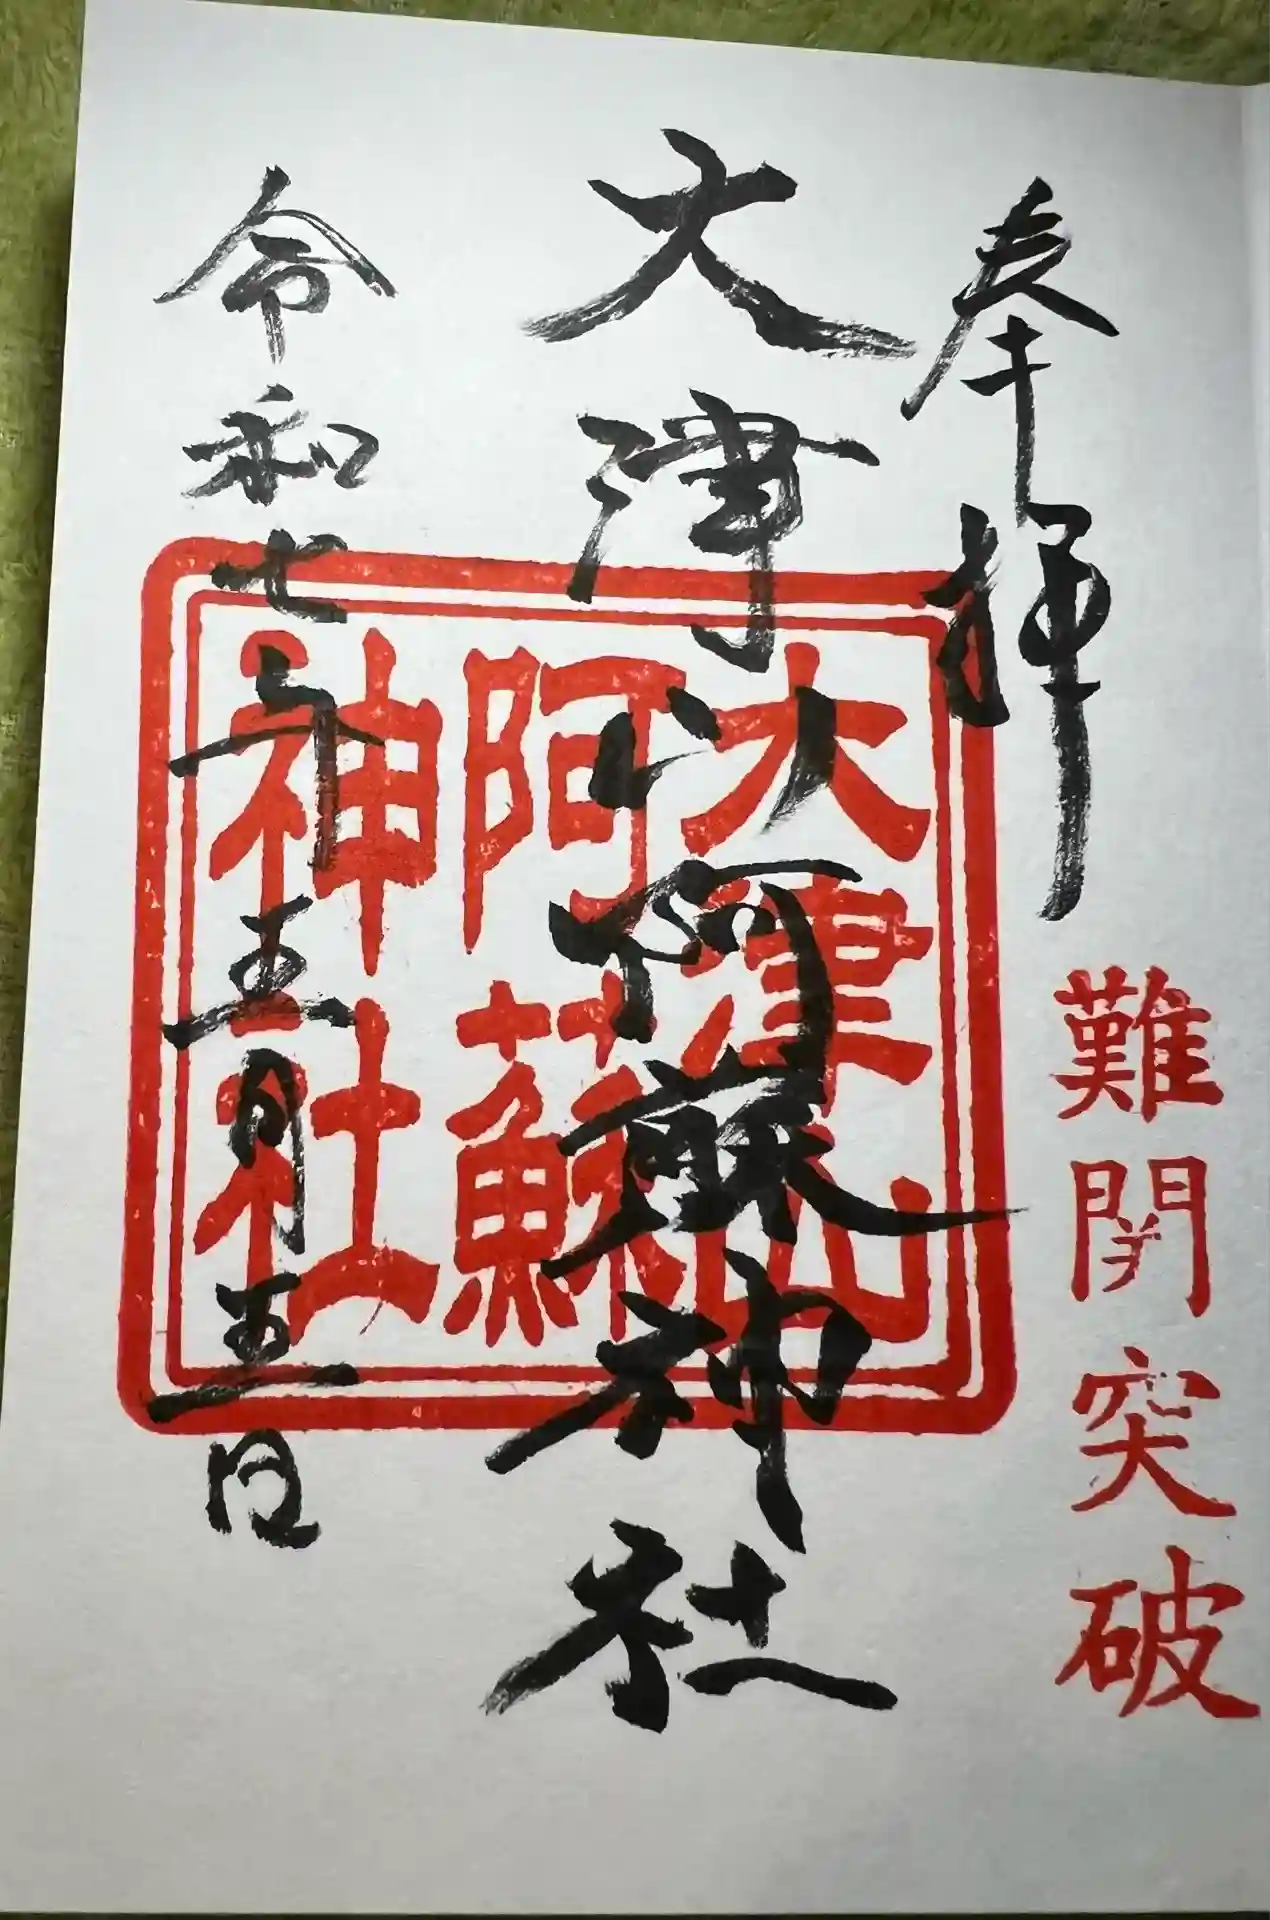 奉拝
難関突破
大津山阿蘇神社
大津山
阿蘇
神社
令和七年五月五日